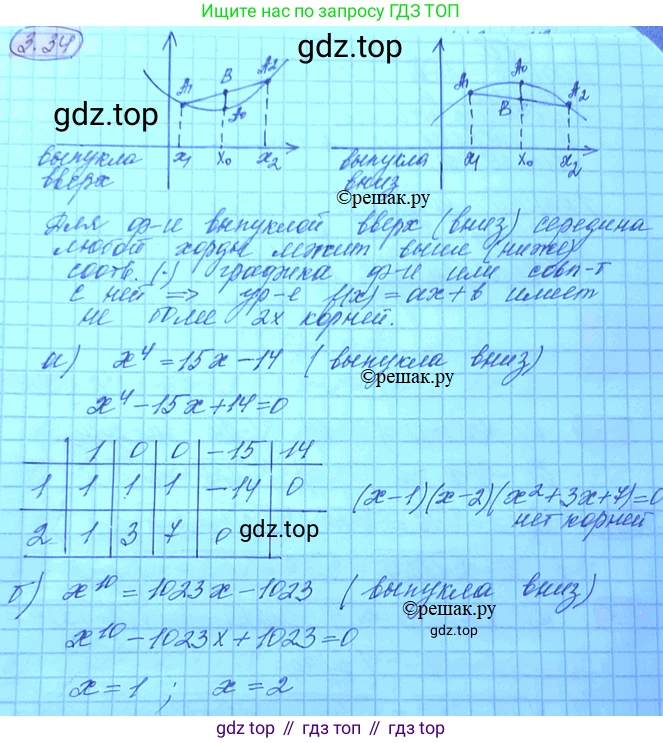 Ищите ответы по запросу ГДЗ ТОП
3.34
гдз top
гдз top
A1 B A2 A0
A1 A0 B A2
x1 x0 x2
x1 x0 x2
выпукла вверх
выпукла вниз
©решак.ру
Для ф-и выпуклой вверх (вниз) середина
любой хорды лежит выше (ниже)
соотв. (·) графика ф-и или совп-т
с ней => ур-е f(x)=ax+b имеет
не более 2х корней.
а) x⁴=15x-14 (выпукла вниз)
©решак.ру
x⁴-15x+14=0
1 0 0 -15 14
1 1 1 1 -14 0
2 1 3 7 0
гдз top
(x-1)(x-2)(x²+3x+7)=0
нет корней
б) x¹⁰=1023x-1023 (выпукла вниз)
©решак.ру
x¹⁰-1023x+1023=0
x=1; x=2
gdz top // гдз топ // гдз top